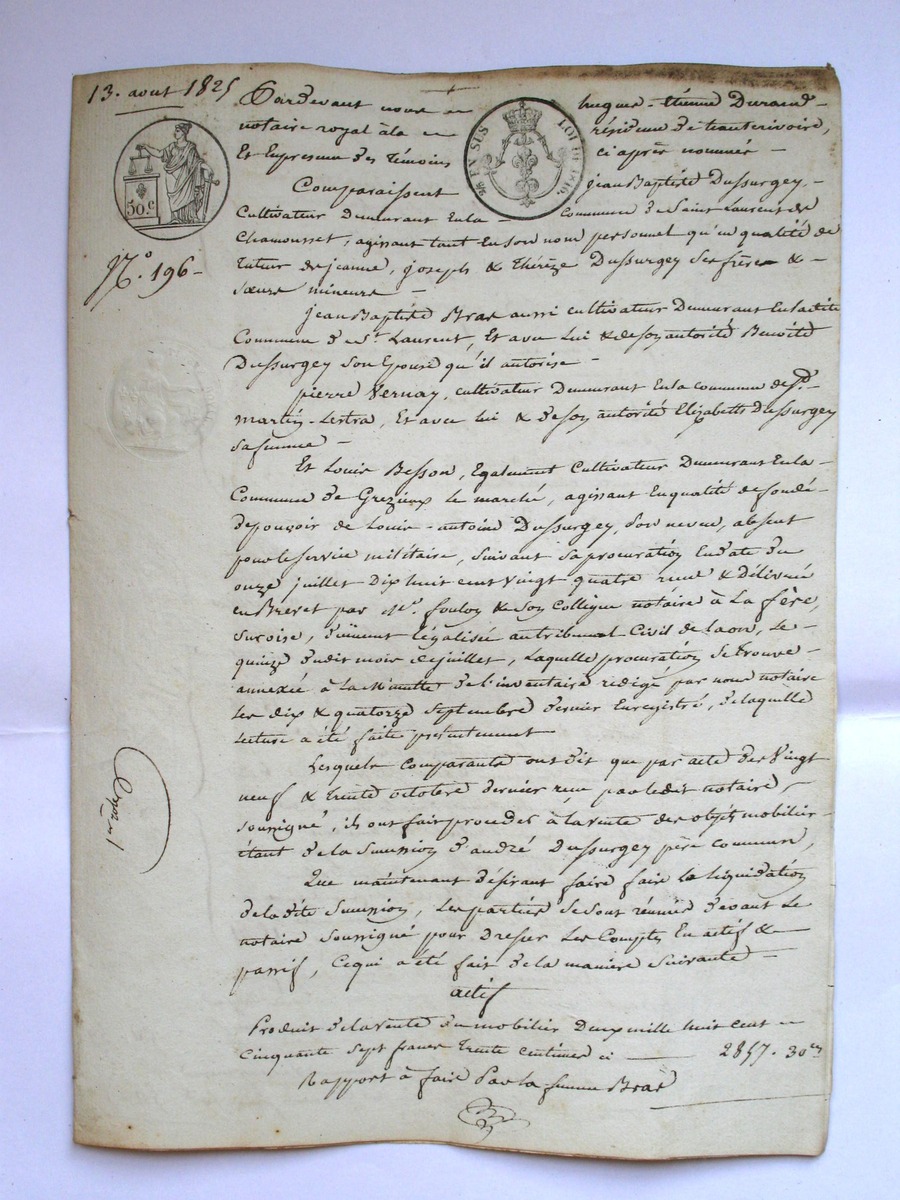 13. aout 1825
Pardevant nous hugues-étienne Durand
notaire royal à la résidence de hauterivoire,
Et En presence des témoins ci après nommés
Comparaissent jean Baptiste Dussurgey,
Cultivateur Demeurant En la Commune de Saint Laurent de
Chamousset, agissant tant En son nom personnel qu'en qualité de
tuteur de jeanne, joseph & thérèze Dussurgey ses frère &
sœurs mineurs
jean Baptiste Bras aussi cultivateur Demeurant En ladite
Commune de St. Laurent, Et avec Lui & de son autorité Benoite
Dussurgey son Epouse qu'il autorise
pierre Vernay, cultivateur Demeurant En la commune de St.
martin-Lestra, Et avec lui & de son autorité Elizabeth Dussurgey
sa femme
Et Louis Besson, Egalement Cultivateur Demeurant En la
Commune de Grezieux le marché, agissant En qualité de fondé
de pouvoir de Louis-antoine Dussurgey, son neveu, absent
pour le service militaire, suivant sa procuration En date du
onze juillet Dix huit cent vingt quatre reçue & Délivrée
en Brevet par Me. foulon & son Collègue notaire à La fère,
sur oise, duement légalisée au tribunal Civil de Laon, Le
quinze dudit mois de juillet, Laquelle procuration se trouve
annexée à La Minutte de l'inventaire rédigé par nous notaire
Les dix & quatorze septembre dernier Enregistré, de laquelle
Lecture a été faite presentement
Lesquels Comparants ont dit que par acte des Vingt
neuf & trente octobre dernier reçu par ledit notaire,
soussigné, ils ont fait procéder à la vente des objets mobilier
étant de la succession d'andré Dussurgey père commun,
Que maintenant désirant faire faire la liquidation
de la dite succession, Les parties se sont réunies devant Le
notaire soussigné pour Dresser Les Comptes En actif &
passif, Ce qui a été fait de la maniere suivante
actif
Produit de la vente du mobilier Deux mille huit cent
Cinquante sept francs trente centimes ci 2857. 30 cs
Rapport à faire Par la femme Bras
50.c
EN SUS
LOI DE 1816.
N.° 196